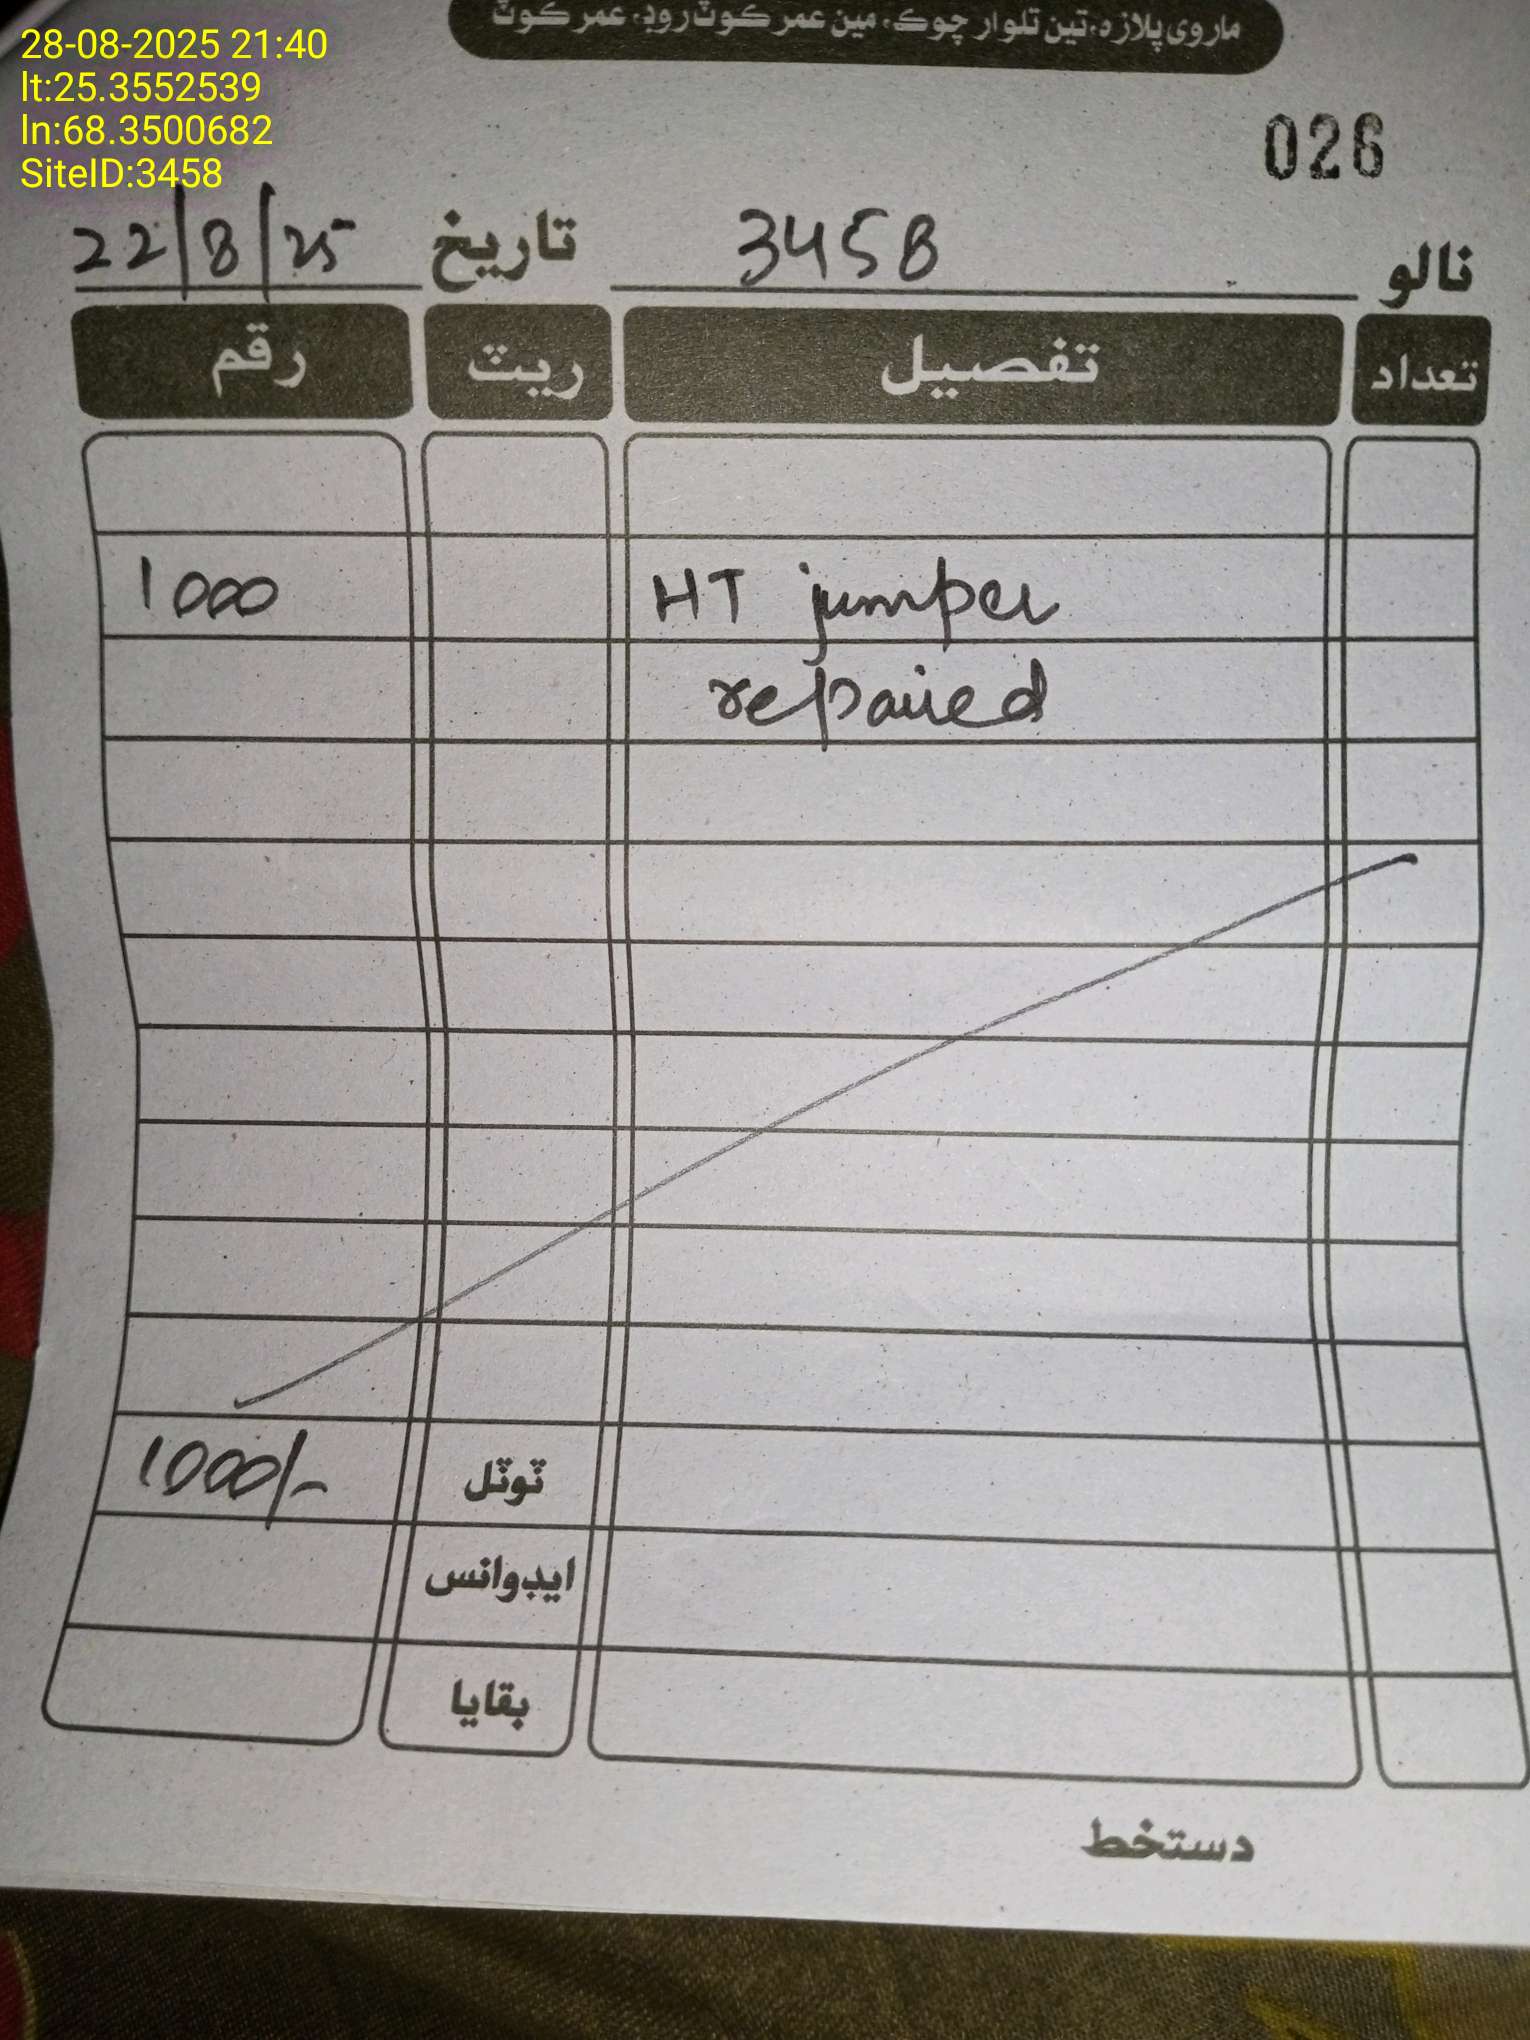 28-08-2025 21:40
lt:25.3552539
ln:68.3500682
SiteID:3458
ماروي پلازه، تين تلوار چوڪ، مين عمر ڪوٽ روڊ، عمر ڪوٽ
026
نالو 3458 تاريخ 22/8/25
تعداد تفصيل ريٽ رقم
HT jumper 1000
repaired
ٽوٽل 1000/-
ايڊوانس
بقايا
دستخط